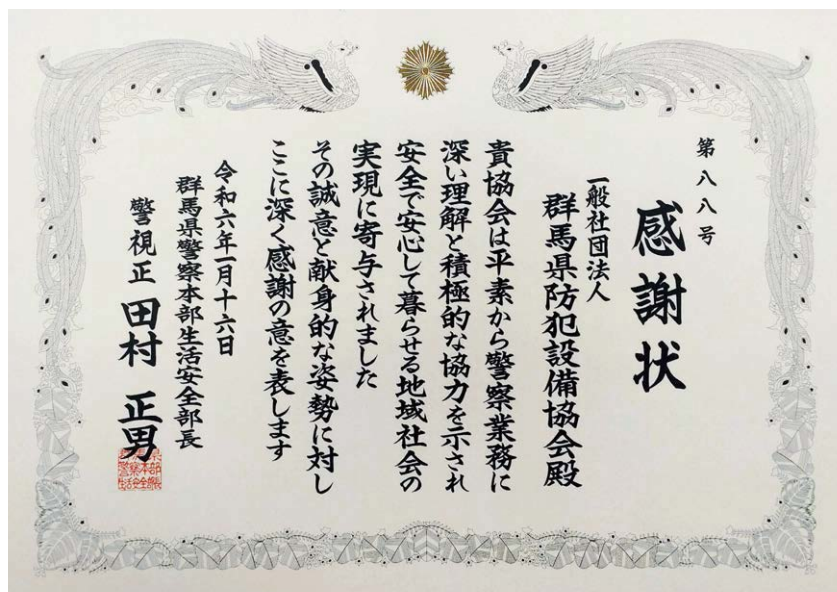 第八八号
感謝状
一般社団法人
群馬県防犯設備協会殿
貴協会は平素から警察業務に
深い理解と積極的な協力を示され
安全で安心して暮らせる地域社会の
実現に寄与されました
その誠意と献身的な姿勢に対し
ここに深く感謝の意を表します
令和六年一月十六日
群馬県警察本部生活安全部長
警視正 田村 正男